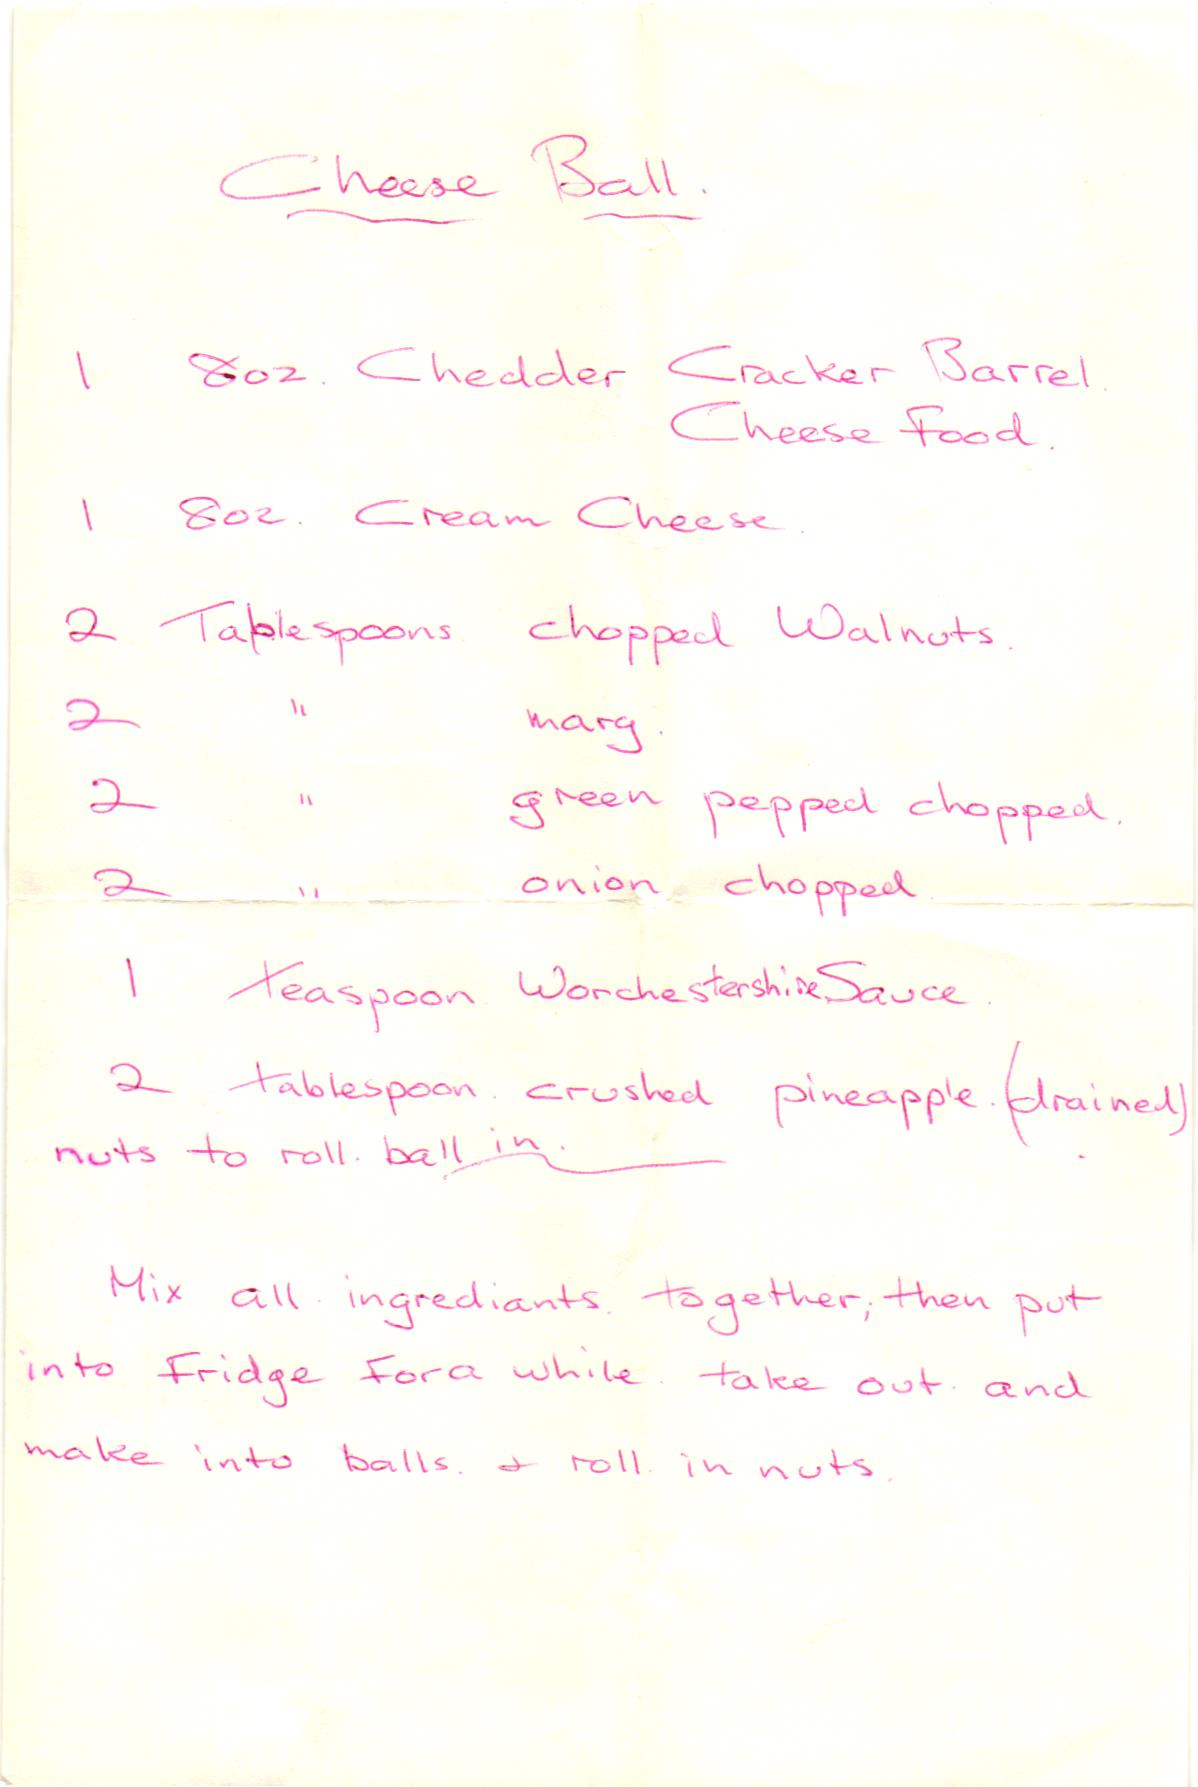 Cheese Ball.
1 8oz. Chedder Cracker Barrel.
Cheese Food.
1 8oz. Cream Cheese.
2 Tablespoons chopped Walnuts.
2 " marg.
2 " green pepped chopped.
2 " onion chopped
1 teaspoon Worchestershire Sauce.
2 tablespoon. crushed pineapple. (drained)
nuts to roll. ball in.
Mix all ingrediants together, then put
into Fridge For a while. take out and
make into balls. & roll in nuts.